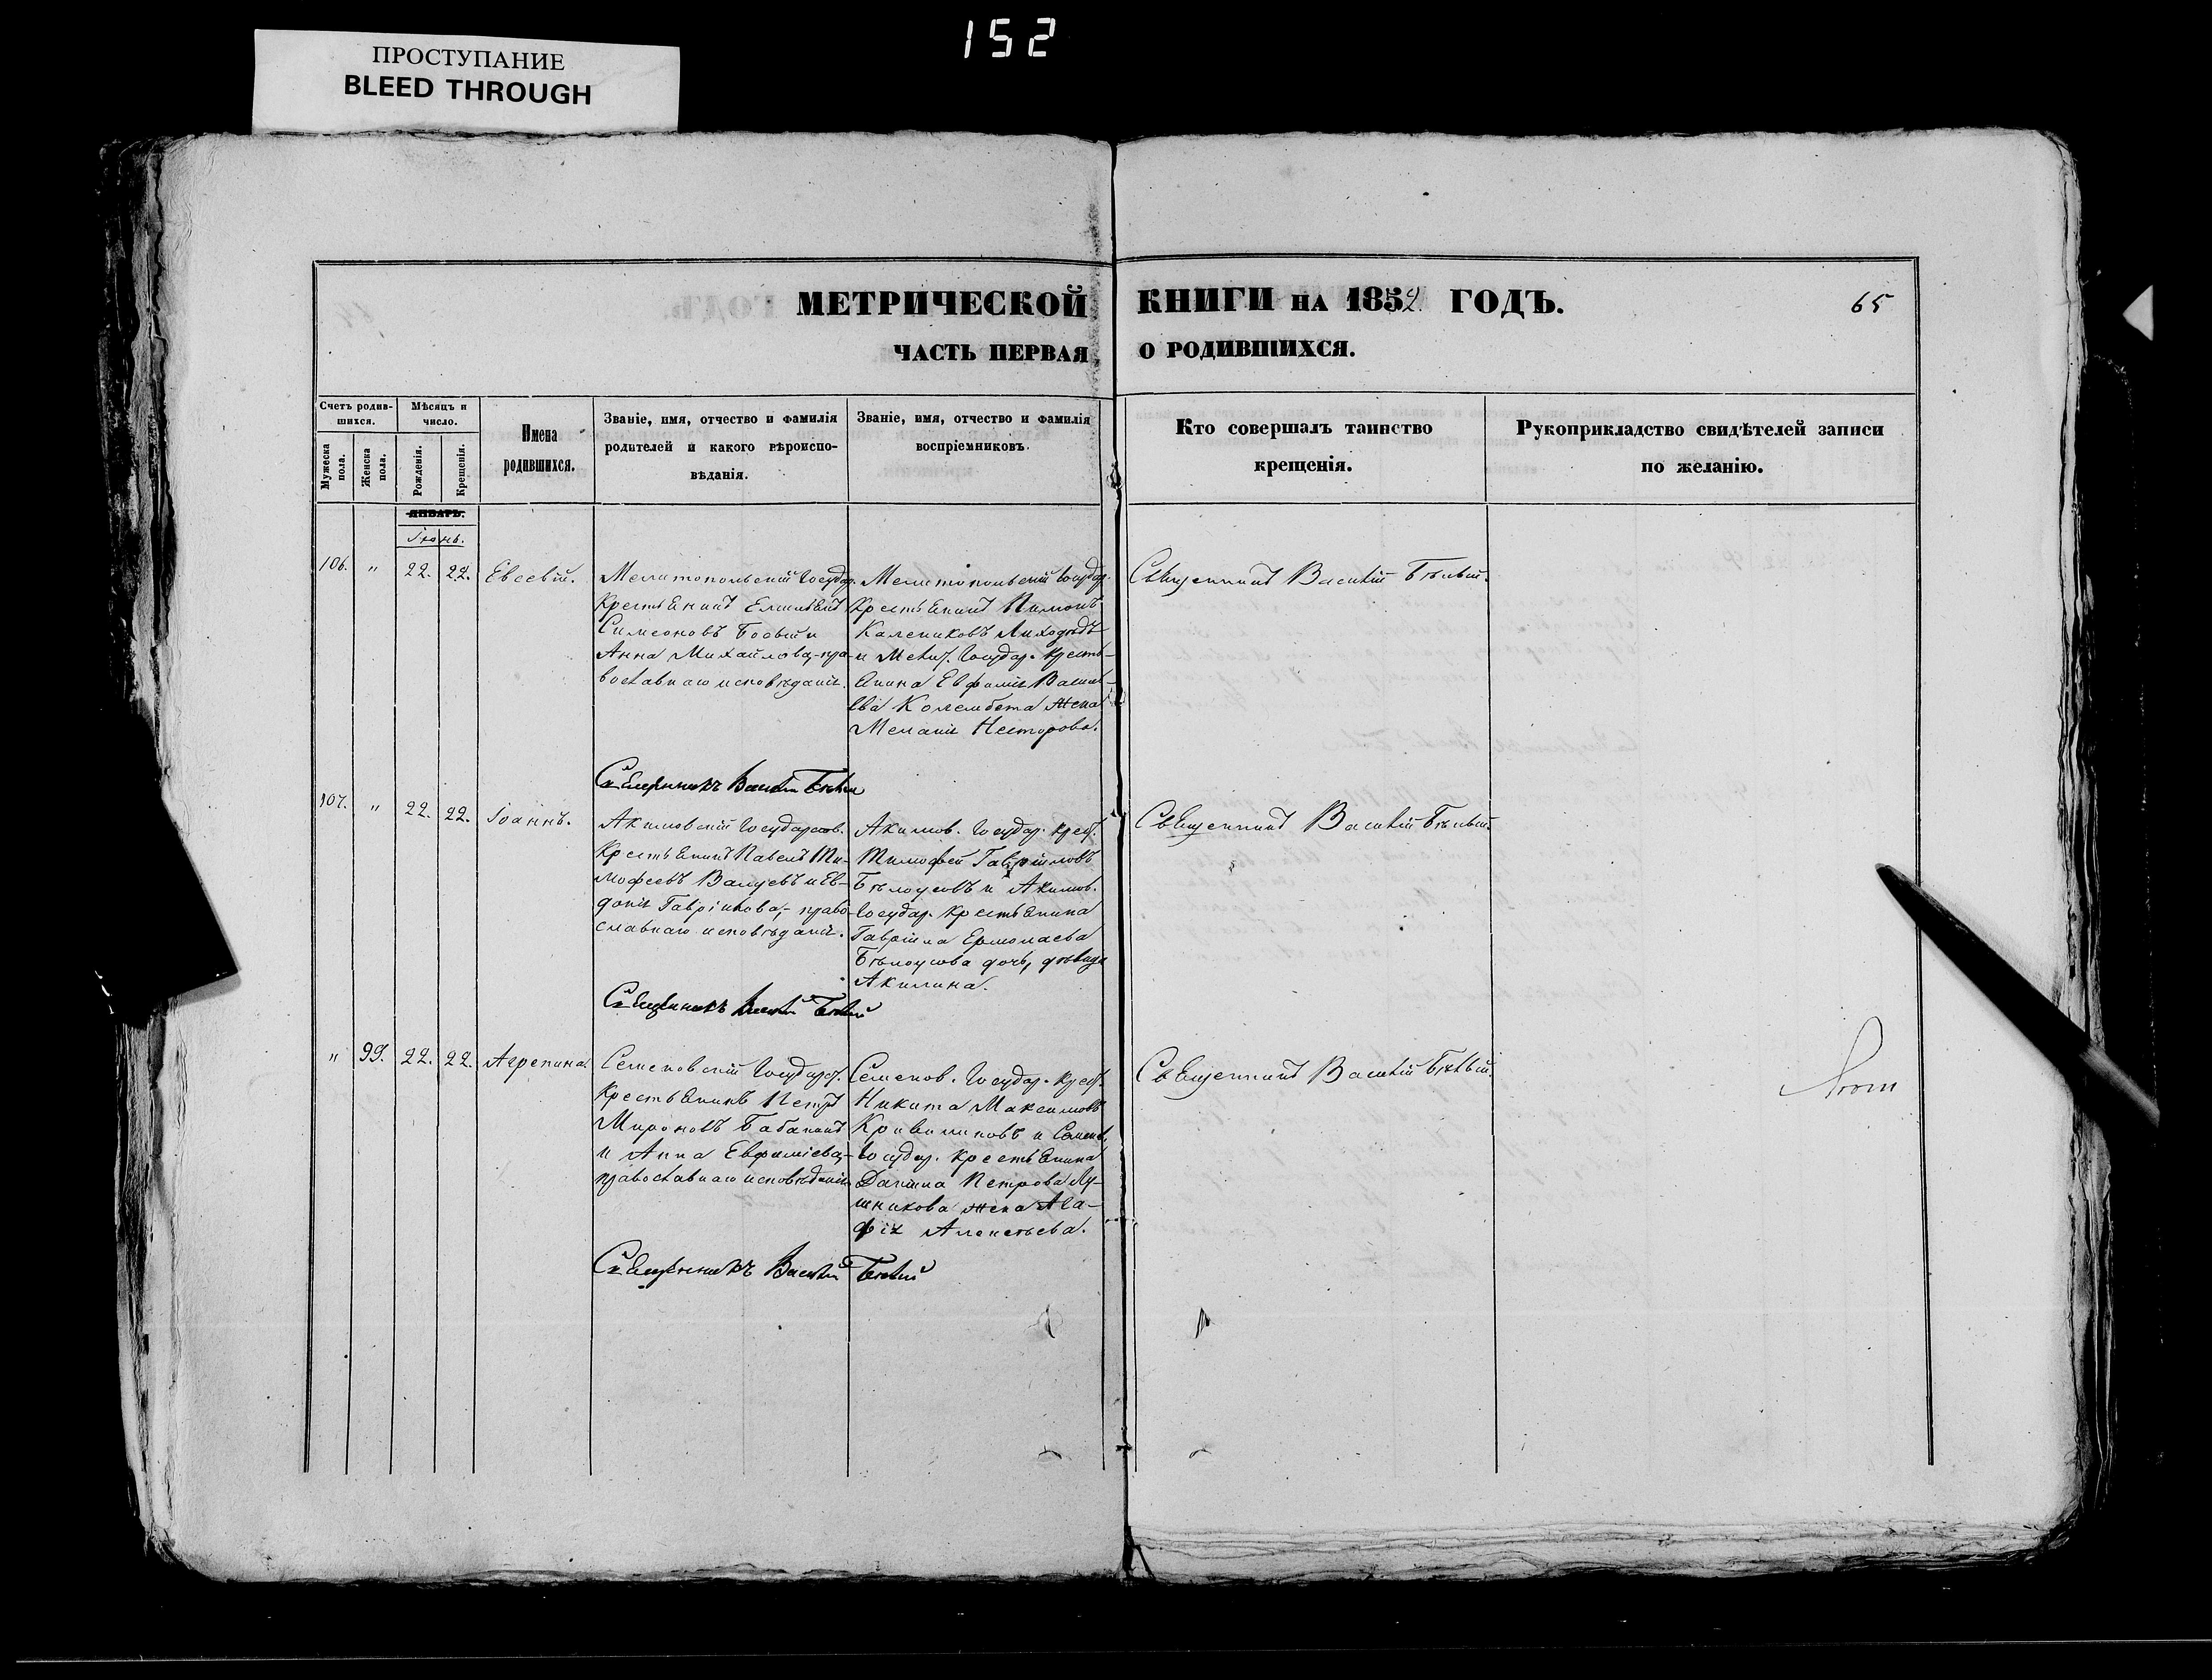 152
ПРОСТУПАНИЕ
BLEED THROUGH
МЕТРИЧЕСКОЙ КНИГИ НА 1852. ГОДЪ.
65
ЧАСТЬ ПЕРВАЯ, О РОДИВШИХСЯ.
Счетъ родив-
шихся.
Мужеска пола.
Женска пола.
Мѣсяцъ и
число.
Рожденія.
Крещенія.
Имена
родившихся.
Званіе, имя, отчество и фамилія
родителей и какого вѣроиспо-
вѣданія.
Званіе, имя, отчество и фамилія
воспріемниковъ.
Кто совершалъ таинство
крещенія.
Рукоприкладство свидѣтелей записи
по желанію.
ЯНВАРЬ.
Іюнь.
106. " 22. 22. Евсевій.
Мелитопольскій Государ.
Крестьянинъ
Симеоновъ Босый и
Анна Михайлова, пра-
вославнаго исповѣданія.
Мелитопольскій Государ.
Крестьянинъ Пимонъ
Калениковъ Лиходѣдъ
и Мелит. Государ. Кресть-
янина Евфимія Василь-
ева Колембета жена
Меланія Несторова.
Священникъ Василій Бѣлый.
Священникъ Василій Бѣлый
107. " 22. 22. Іоаннъ.
Акимовскій Государств.
Крестьянинъ Павелъ Ти-
мофеевъ Валуевъ и Ев-
докія Гавріилова, право-
славнаго исповѣданія.
Акимов. Государ. Крест.
Тимофей Гавріиловъ
Бѣлоусовъ и Акимов.
Государ. Крестьянина
Гавріила Ермолаева
Бѣлоусова дочь, дѣвица
Акилина.
Священникъ Василій Бѣлый.
Священникъ Василій Бѣлый
" 99. 22. 22. Агрепина.
Семеновскій Государст.
Крестьянинъ Петръ
Мироновъ Бабанинъ
и Анна Евфиміева,
православнаго исповѣданія.
Семенов. Государ. Крест.
Никита Максимовъ
и Семенов.
Государ. Крестьянина
Даніила Петрова Лу-
шникова жена Ага-
фія
Священникъ Василій Бѣлый.
Священникъ Василій Бѣлый